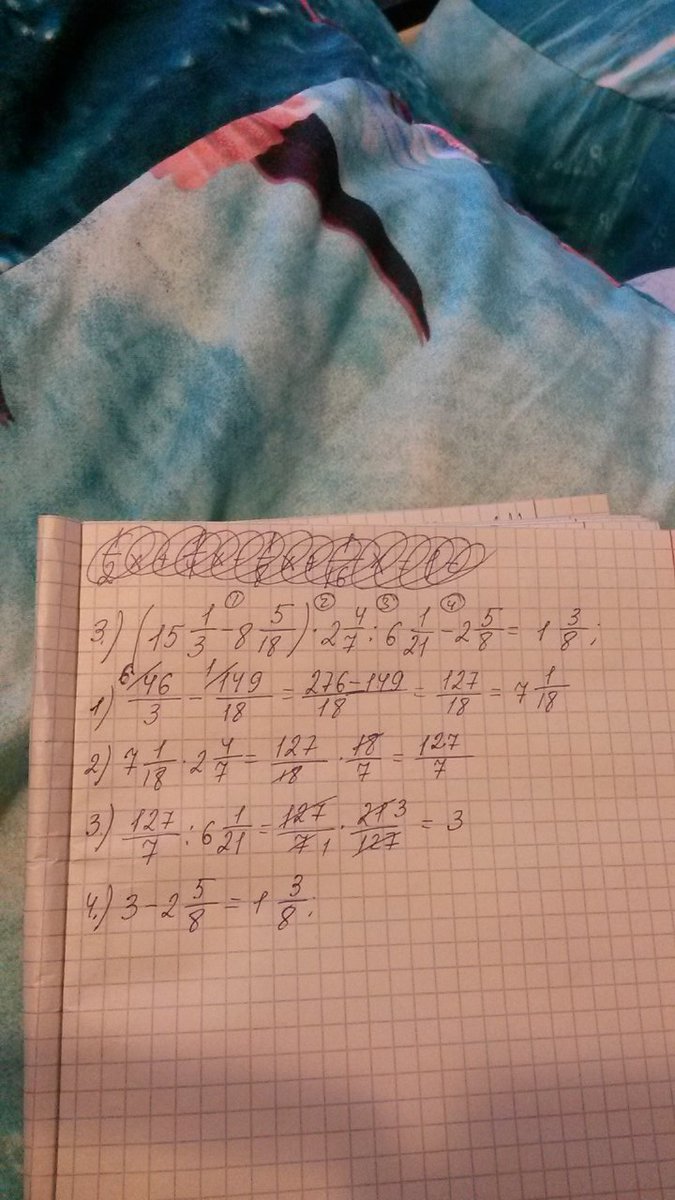 3.) (15 1/3 - 8 5/18) · 2 4/7 : 6 1/21 - 2 5/8 = 1 3/8;
① ② ③ ④
1) 6/ 46/3 - 1/ 149/18 = (276-149)/18 = 127/18 = 7 1/18
2) 7 1/18 · 2 4/7 = 127/18 · 18/7 = 127/7
3.) 127/7 : 6 1/21 = 127/7 1 · 21 3/127 = 3
4.) 3 - 2 5/8 = 1 3/8;